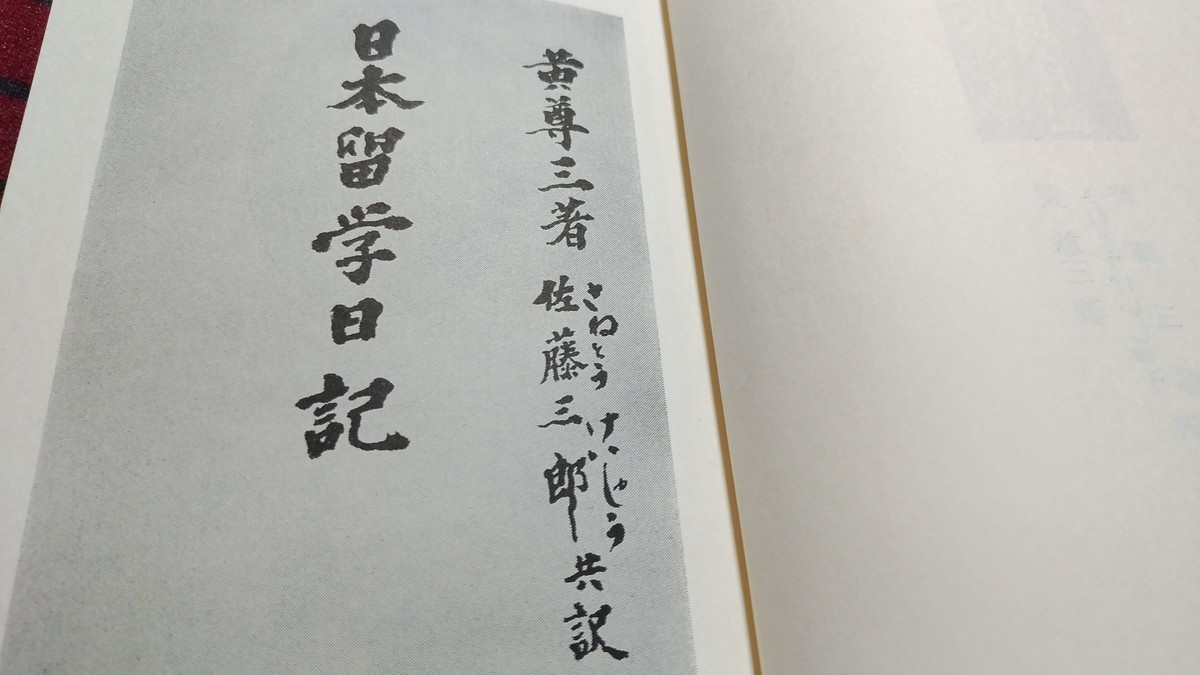 黄尊三著
さねとう けいしゅう
佐藤三郎
共訳
日本留学日記